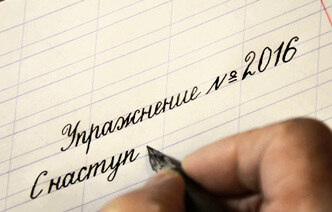 Упражнение №2016
С наступ